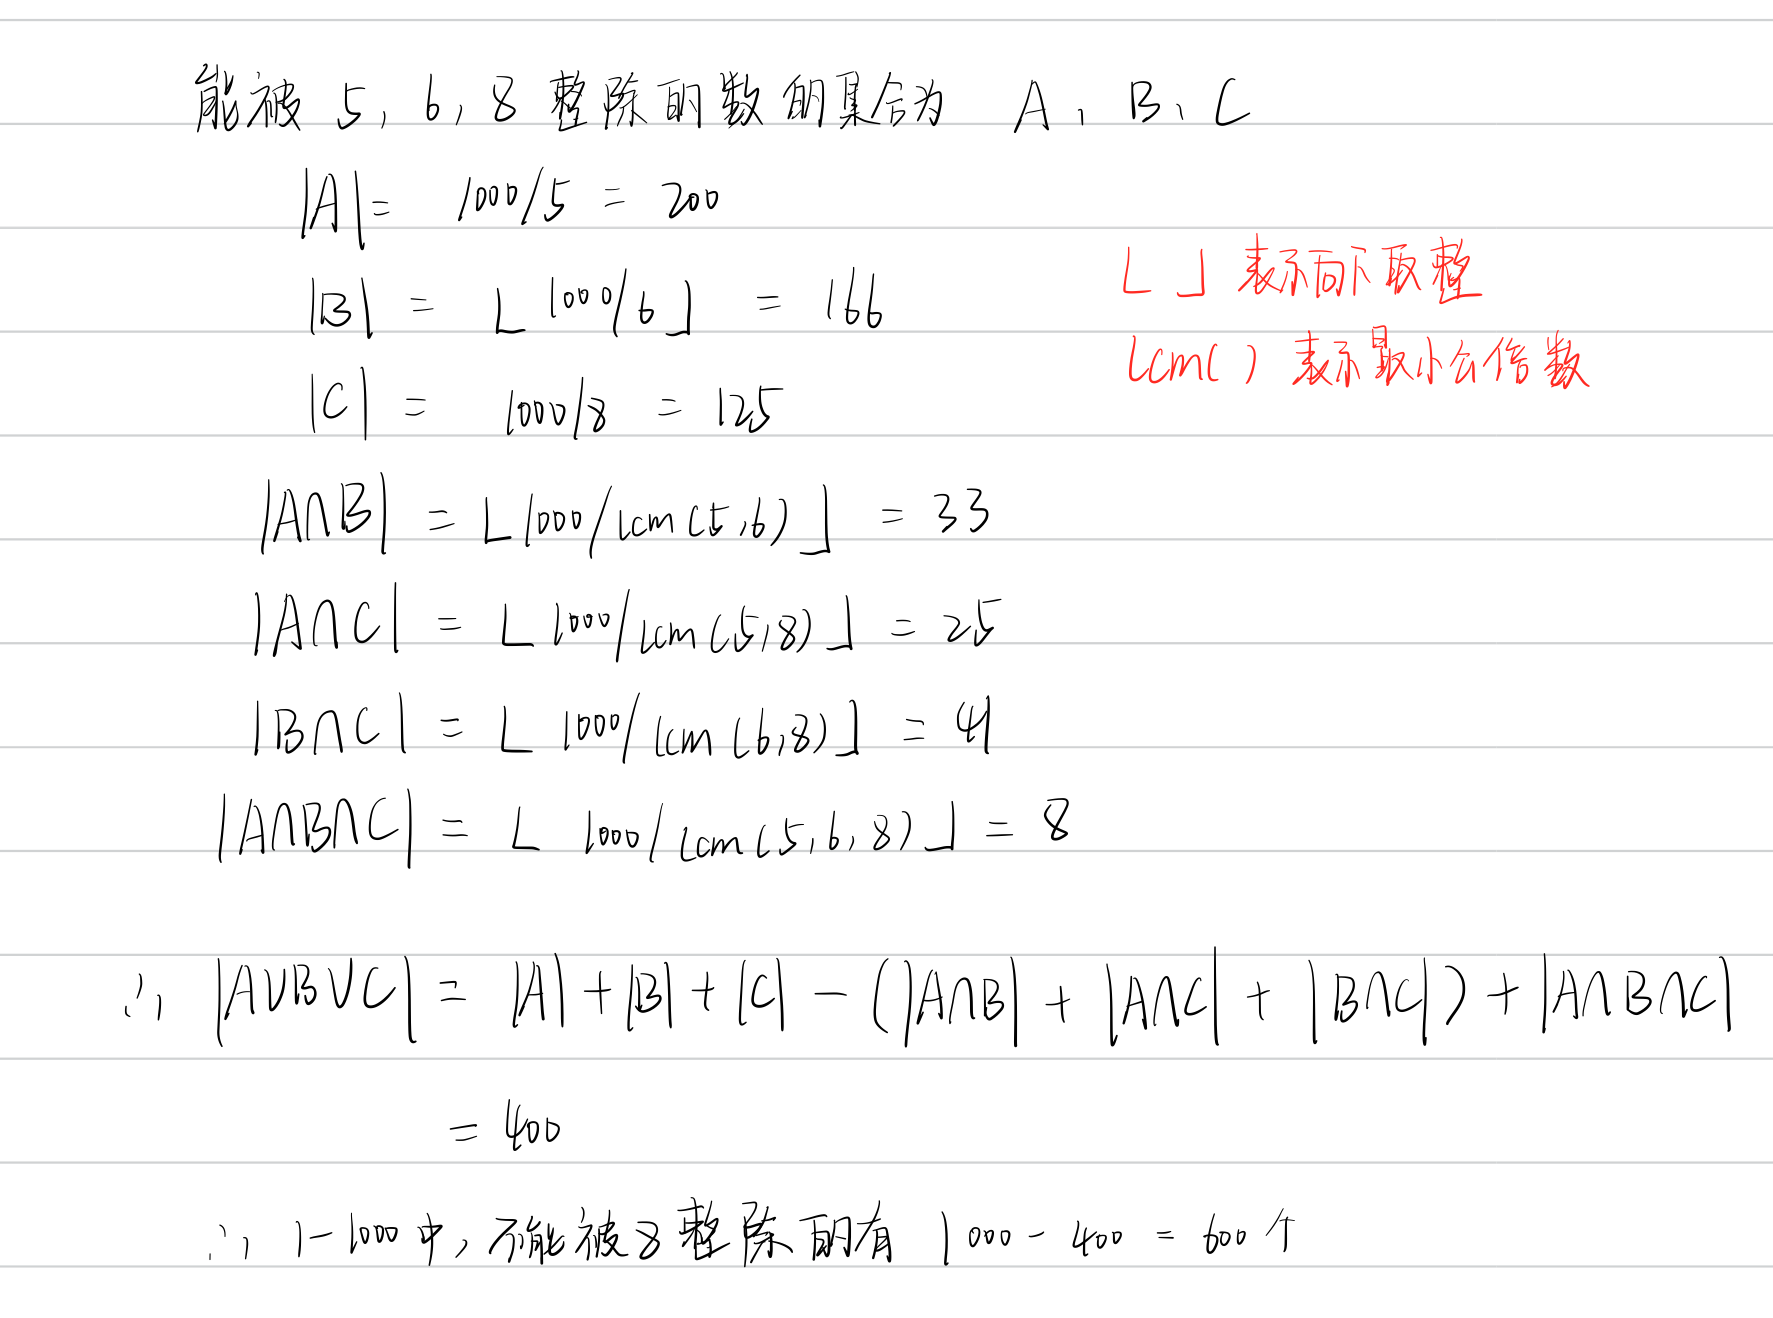 能被 5, 6, 8 整除的数的集合为 A、B、C
|A|= 1000/5 = 200
|B| = ⌊ 1000/6 ⌋ = 166
⌊ ⌋ 表示向下取整
|C| = 1000/8 = 125
lcm( ) 表示最小公倍数
|A∩B| = ⌊1000/lcm(5,6)⌋ = 33
|A∩C| = ⌊ 1000/lcm(5,8)⌋ = 25
|B∩C| = ⌊ 1000/lcm(6,8)⌋ = 41
|A∩B∩C| = ⌊ 1000/lcm(5,6,8)⌋ = 8
∴ |A∪B∪C| = |A|+|B|+|C| - (|A∩B| + |A∩C| + |B∩C|) + |A∩B∩C|
= 400
∴ 1-1000中, 不能被8整除的有 1000 - 400 = 600个